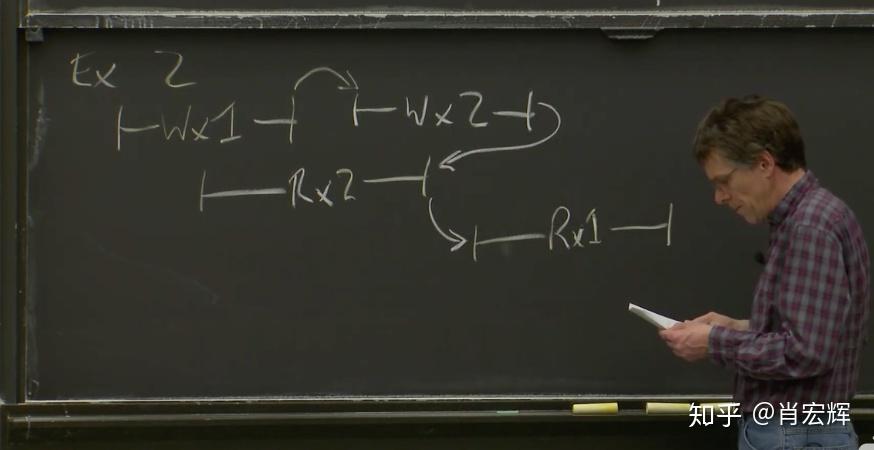 Ex 2
Wx1 Wx2
Rx2
Rx1
知乎 @肖宏辉